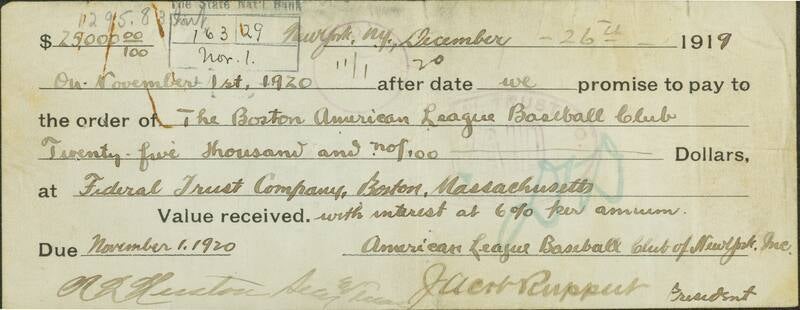 1295.83
The State Nat'l Bank
$ 25000 00/100
163129
Nov. 1.
New York, N.Y., December 26th 1919
11/1 20
On November 1st, 1920 after date we promise to pay to
the order of The Boston American League Baseball Club
Twenty-five thousand and no/100 Dollars,
at Federal Trust Company, Boston, Massachusetts
Value received. with interest at 6% per annum.
Due November 1. 1920 American League Baseball Club of New York, Inc.
Jacob Ruppert
President